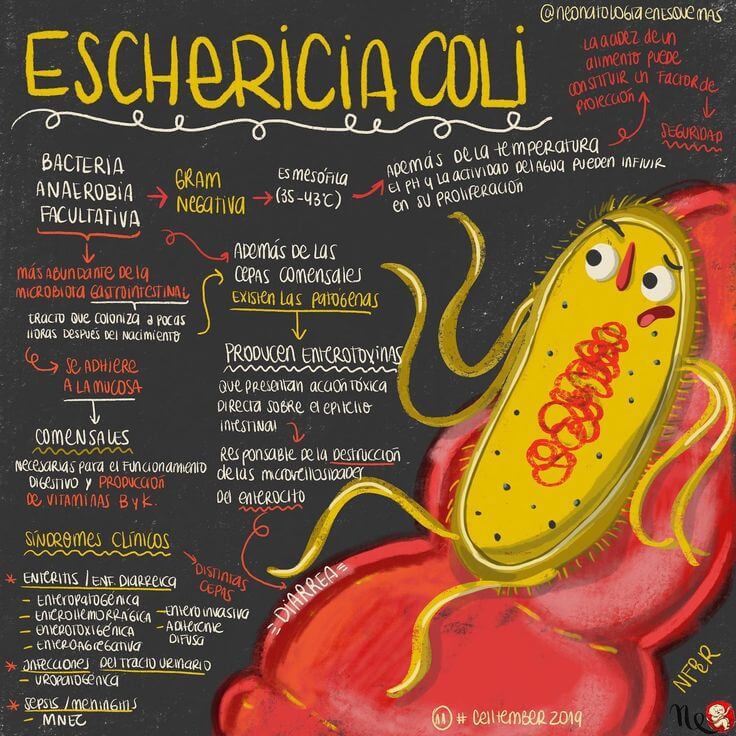 @neonatologiaenesquemas
ESCHERICIA COLI
LA ACIDEZ DE UN
ALIMENTO PUEDE
CONSTITUIR UN FACTOR DE
PROTECCIÓN
SEGURIDAD
BACTERIA
ANAEROBIA
FACULTATIVA
GRAM
NEGATIVA
ES MESÓFILA
(35-43°C)
ADEMÁS DE LA TEMPERATURA
EL PH Y LA ACTIVIDAD DEL AGUA PUEDEN INFLUIR
EN SU PROLIFERACIÓN
MÁS ABUNDANTE DE LA
MICROBIOTA GASTROINTESTINAL
TRACTO QUE COLONIZA A POCAS
HORAS DESPUÉS DEL NACIMIENTO
SE ADHIERE
A LA MUCOSA
COMENSALES
NECESARIAS PARA EL FUNCIONAMIENTO
DIGESTIVO Y PRODUCCIÓN
DE VITAMINAS B Y K.
ADEMÁS DE LAS
CEPAS COMENSALES
EXISTEN LAS PATÓGENAS
PRODUCEN ENTEROTOXINAS
QUE PRESENTAN ACCIÓN TÓXICA
DIRECTA SOBRE EL EPITELIO
INTESTINAL
RESPONSABLE DE LA DESTRUCCIÓN
DE LAS MICROVELLOSIDADES
DEL ENTEROCITO
DIARREA
SÍNDROMES CLÍNICOS
DISTINTAS
CEPAS
* ENTERITIS / ENF. DIARREICA
- ENTEROPATOGÉNICA
- ENTEROHEMORRÁGICA
- ENTEROTOXIGÉNICA
- ENTEROAGREGATIVA
- ENTEROINVASIVA
- ADHERENTE
DIFUSA
* INFECCIONES DEL TRACTO URINARIO
- UROPATOGÉNICA
* SEPSIS / MENINGITIS
- MNEC
11 # CELLTEMBER 2019
NFBR
Ne